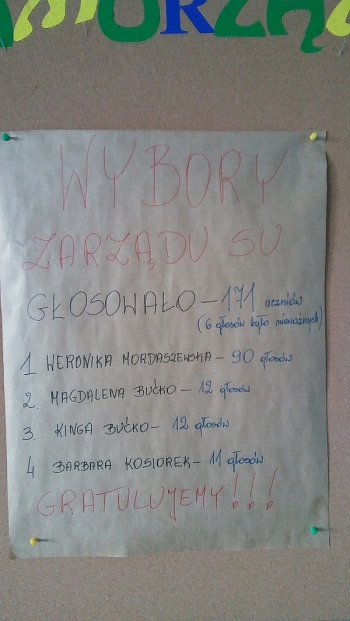 MORZĄ
WYBORY
ZARZĄDU SU
GŁOSOWAŁO - 171 uczniów
(6 głosów było nieważnych)
1 WERONIKA MORDASZEWSKA - 90 głosów
2. MAGDALENA BUĆKO - 12 głosów
3. KINGA BUĆKO - 12 głosów
4. BARBARA KOSIOREK - 11 głosów
GRATULUJEMY!!!